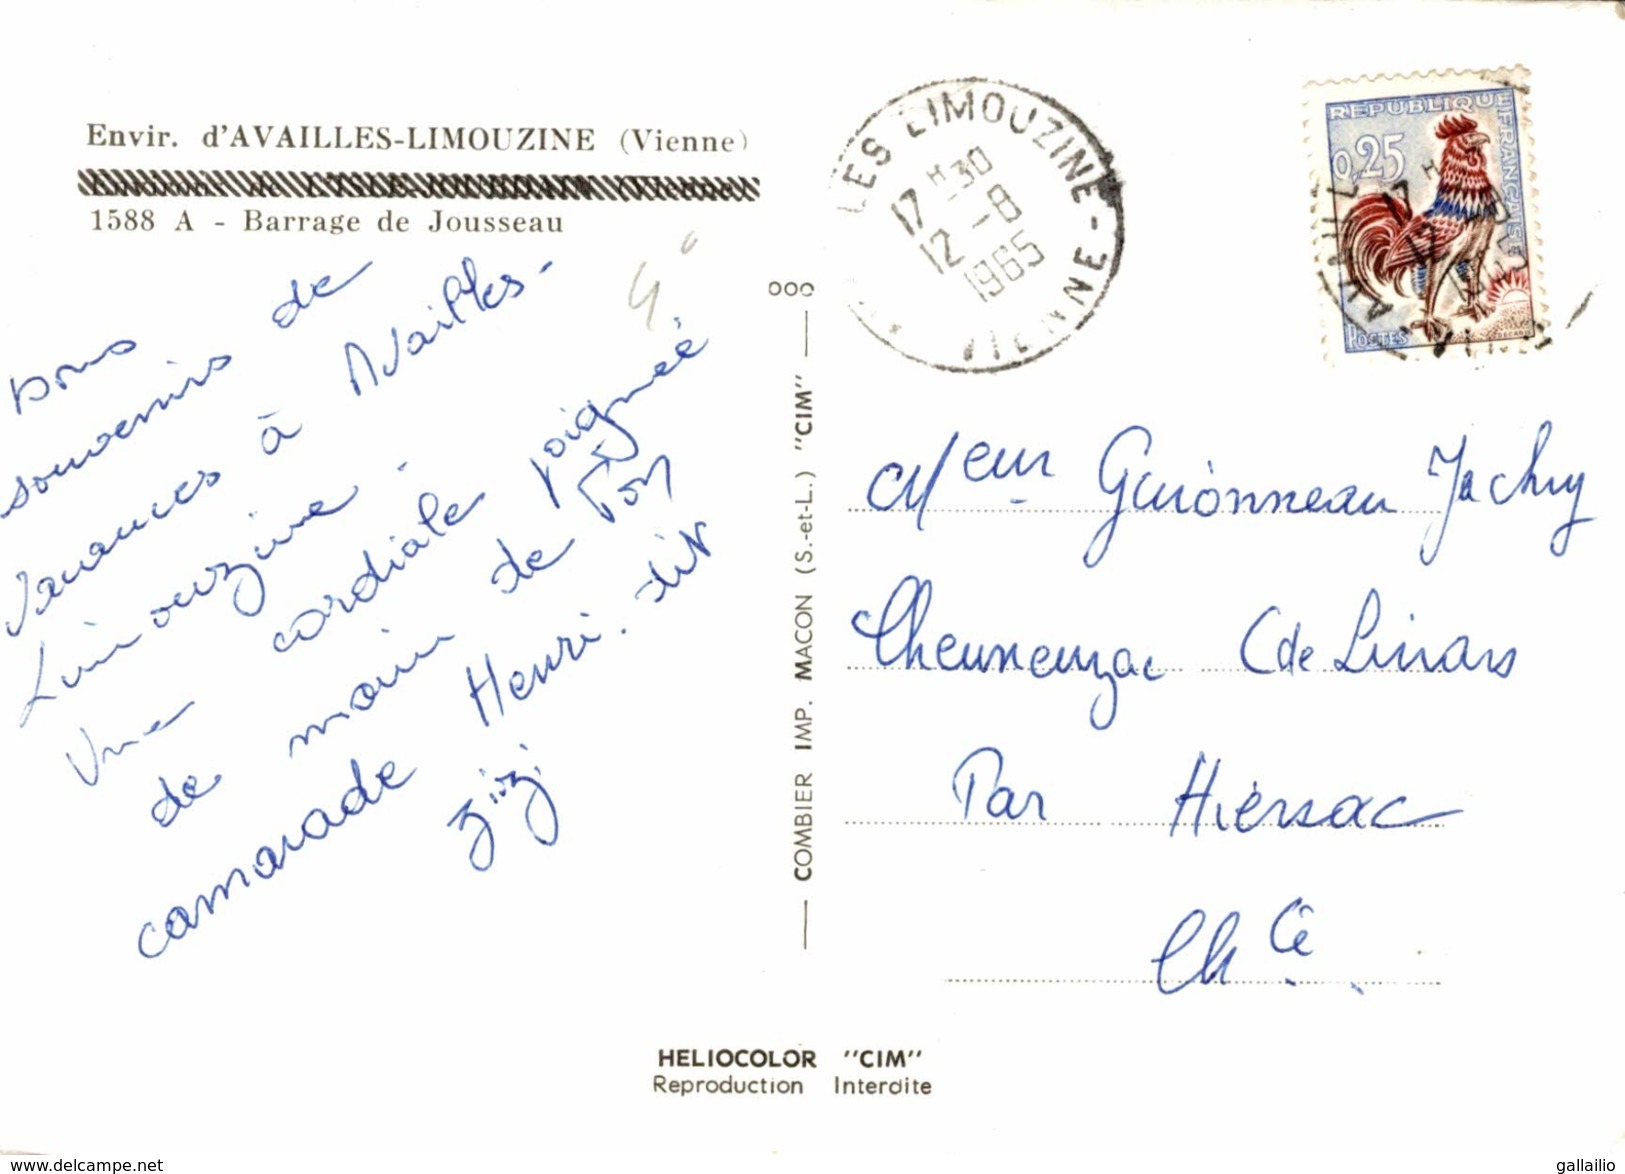 Envir. d'AVAILLES-LIMOUZINE (Vienne)
Environs de L'ISLE-JOURDAIN (Vienne)
1588 A - Barrage de Jousseau
Bons
souvenirs de
vacances à Availles-
Limouzine.
Une cordiale poignée
de main de ton
camarade Henri. dit
zizi.
COMBIER IMP. MACON (S.-et-L.) "CIM"
LES LIMOUZINE - VIENNE
17 H 30
12 - 8
1965
REPUBLIQUE FRANÇAISE
0,25
POSTES
Meur Guionneau Jacky
Cheuneuzac (de Linars
Par Hiersac
Ch Ce
HELIOCOLOR "CIM"
Reproduction Interdite
www.delcampe.net
gallailio